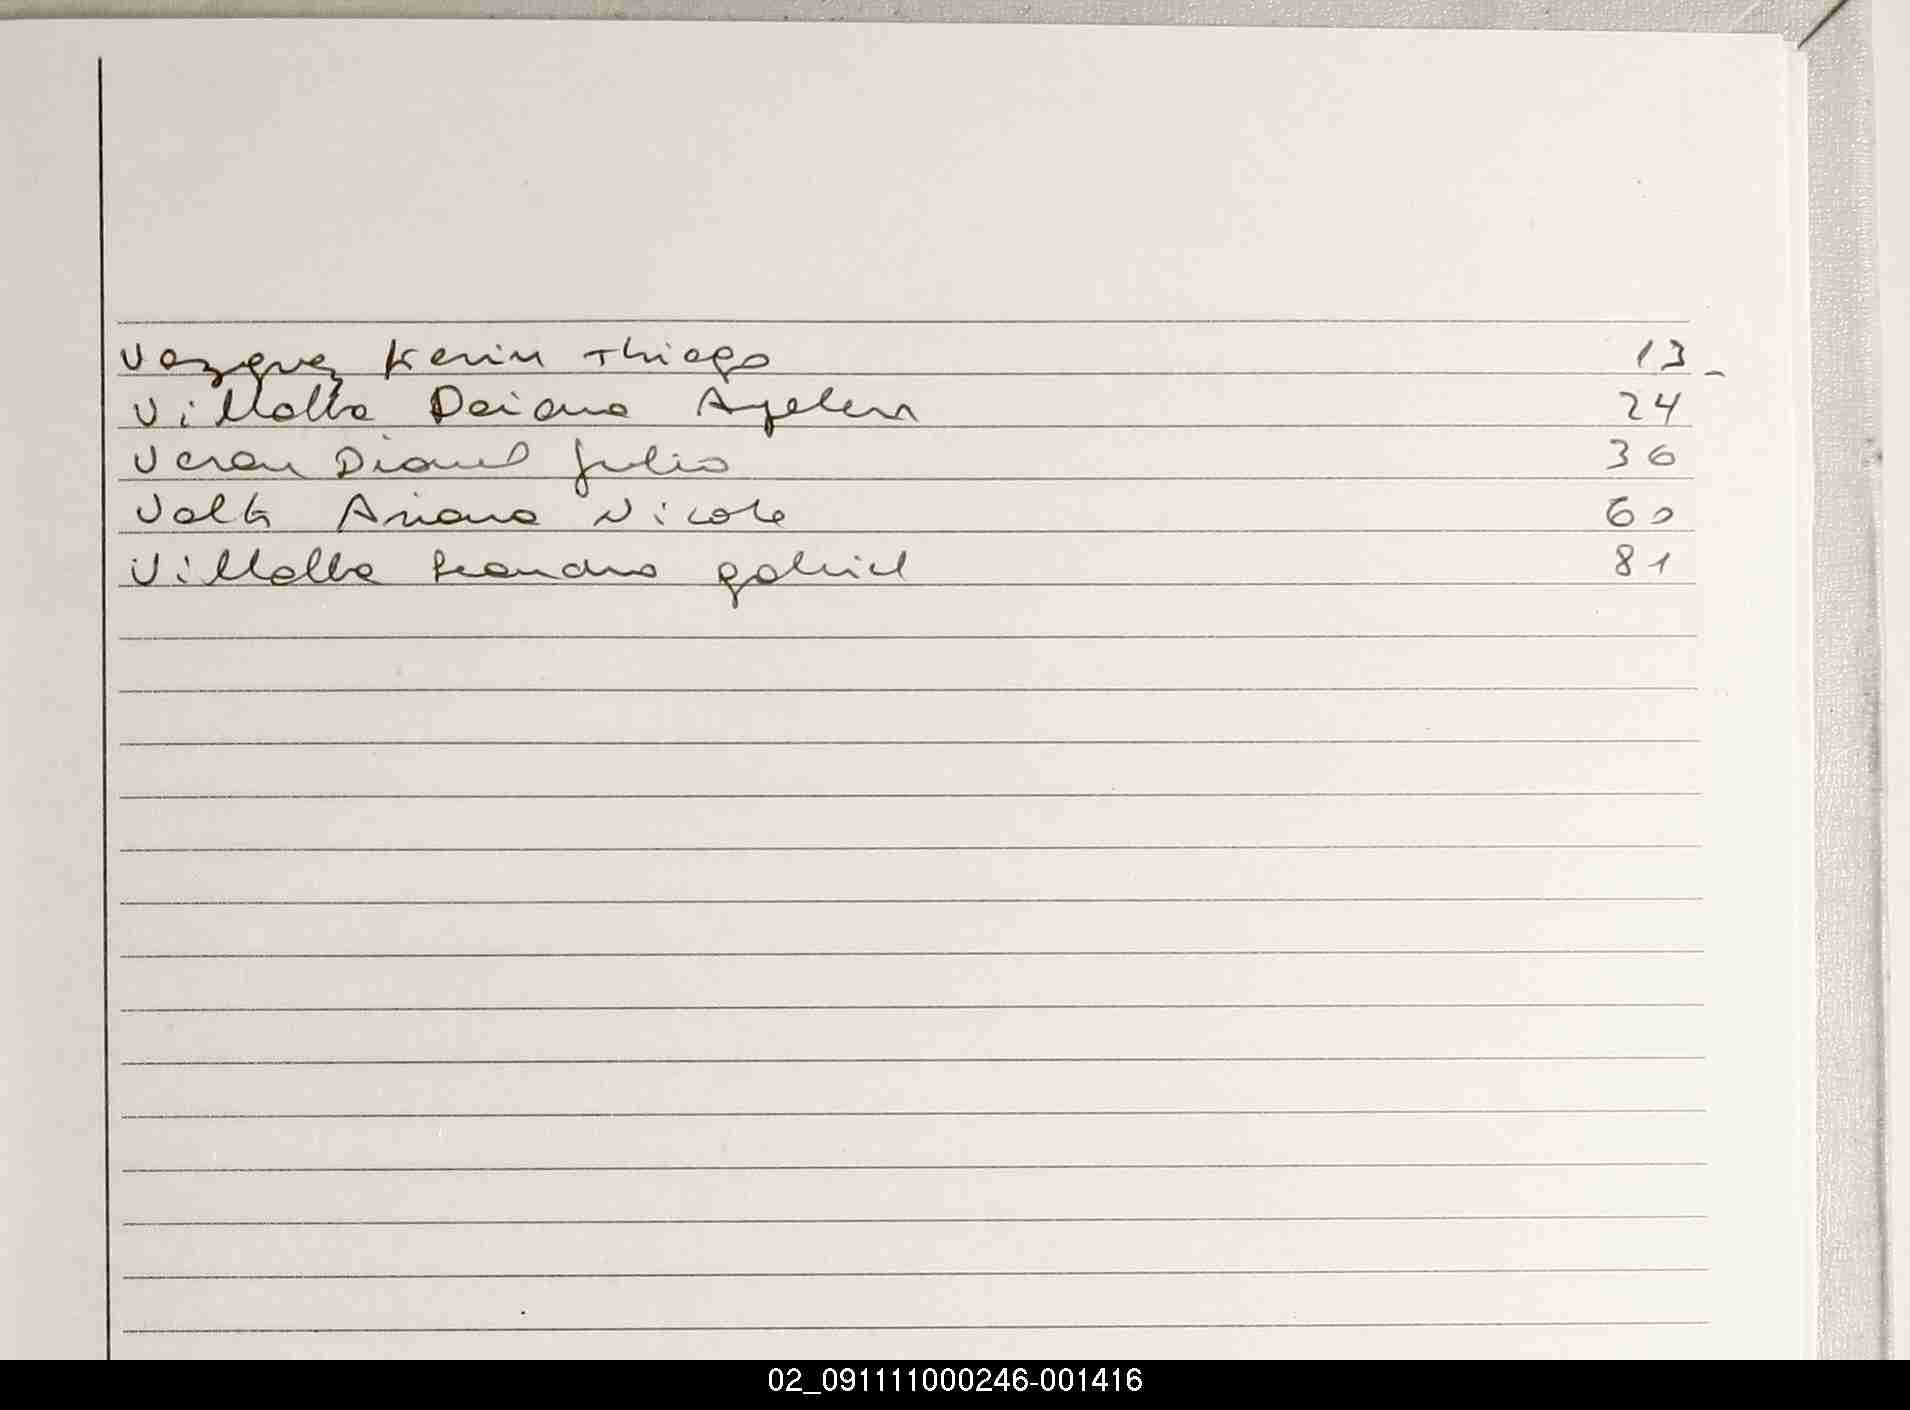 Vazquez Kevin Thiago 13
Villalba Daiana Ayelen 24
Veron Dianel Julio 36
Volta Ariana Nicole 60
Villalba Leandro gabriel 81
02_091111000246-001416